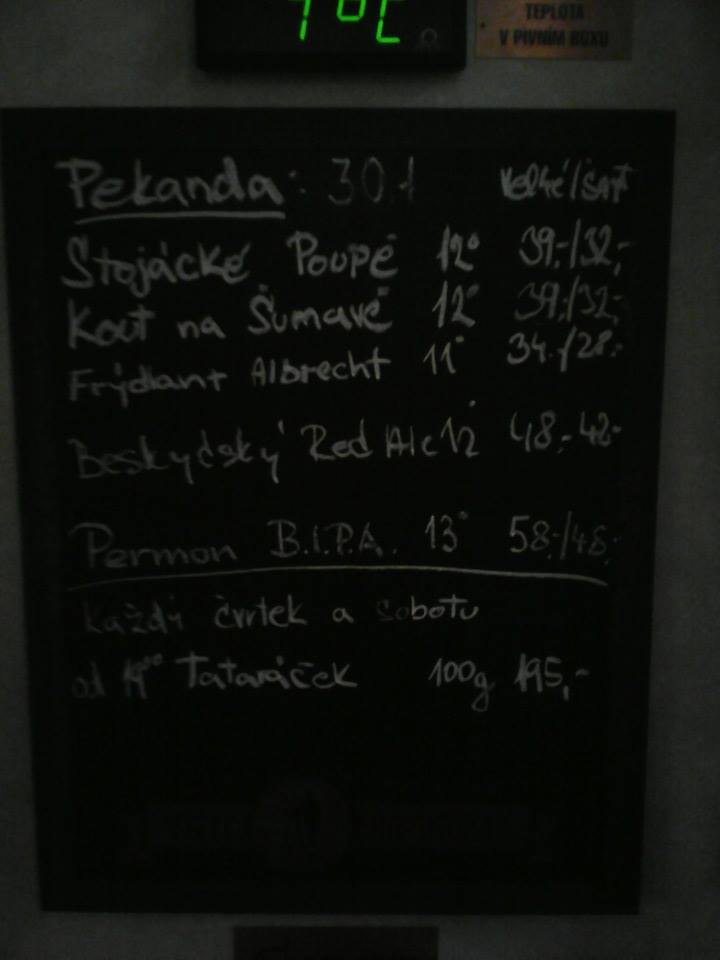 7°C
TEPLOTA
V PIVNÍM BOXU
Pekanda: 30.1 Velké/Šnyt
Stojácké Poupě 12° 39,-/32,-
Kout na Šumavě 12° 39,-/32,-
Frýdlant Albrecht 11° 34,-/28,-
Beskydský Red Ale 12° 48,- 42,-
Permon B.I.P.A. 13° 58,-/48,-
Každý čvrtek a sobotu
od 19⁰⁰ Tataráček 100g 195,-